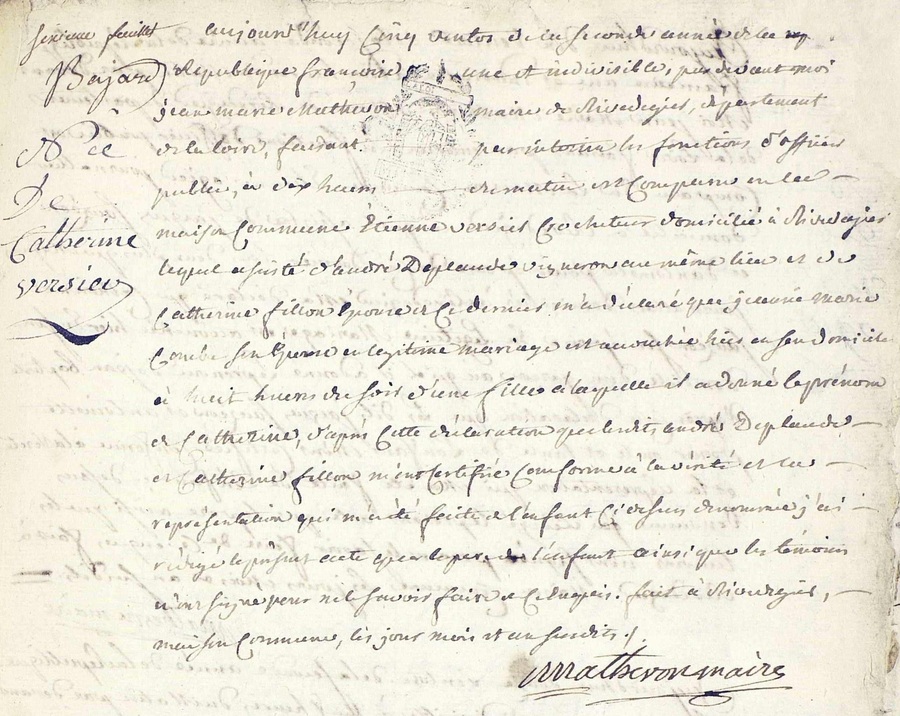 sixieme feuillet
Bajard
N.ce
De
Catherine
versier
aujourd'huy Cinq ventos de la seconde année de la rep.
Republique francoise une et indivisible, pardevant moi
jean marie Matheron maire de Rivedegier, département
de la loire, faisant par interim les fonctions d'officier
public, à dix heures du matin est Comparu en la
maison Commune Etienne versier Crocheteur domicilié à Rivedegier
lequel assisté d'andré Deplaude vigneron au même lieu et de
Catherine fillon Epouse de Ce dernier m'a déclaré que jeanne Marie
Combe son Epouse en légitime mariage est accouchée hier en son domicile
à huit heures du soir d'une fille à laquelle il a donné le prénom
de Catherine, d'après Cette déclaration que lesdits andré Deplaude,
et Catherine fillon m'ont Certifié Conforme à la vérité et la
représentation qui m'a été faite de l'enfant Ci dessus dénommé j'ai
rédigé le présent acte que le pere de l'enfant ainsi que les témoins
n'ont signé pour ne le savoir faire de Ce enquis. fait à Rivedegier,
maison Commune, les jour mois et an susdits ./.
Matheron maire